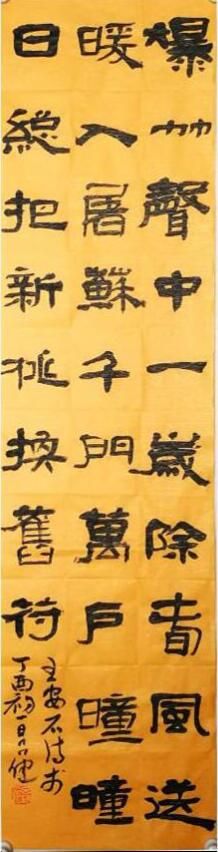 爆竹聲中一歲除春風送
暖入屠蘇千門萬戶曈曈
日總把新桃換舊符
王安石诗
丁酉初一日